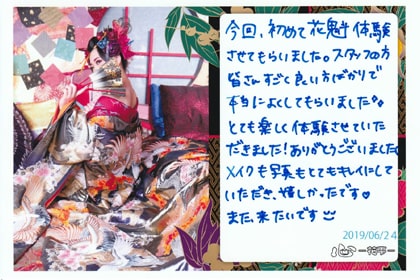 今回、初めて花魁体験
させてもらいました。スタッフの方
皆さんすごく良い方ばかりで
本当によくしてもらいました
とても楽しく体験させていた
だきました!ありがとうございました
メイクも写真もとてもキレイにして
いただき、嬉しかったです♡
また、来たいです
2019/06/24
心-花雫-